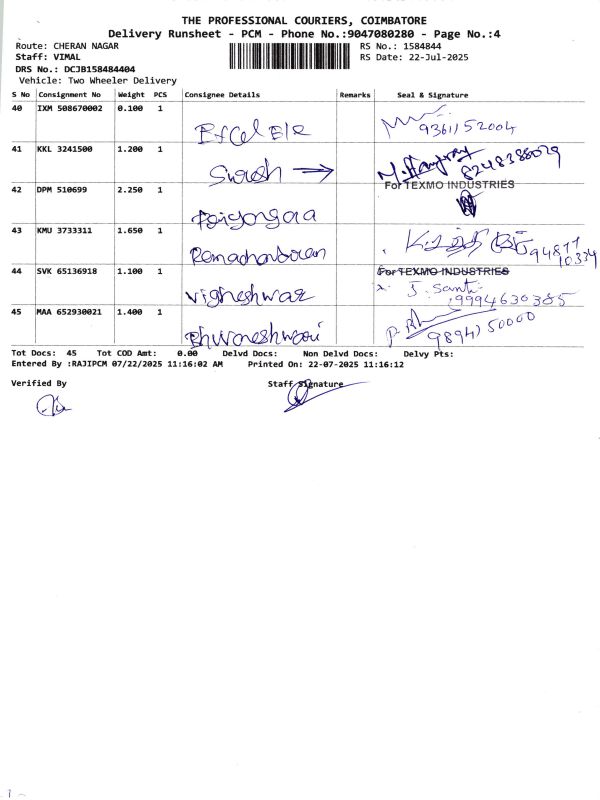 THE PROFESSIONAL COURIERS, COIMBATORE
Delivery Runsheet - PCM - Phone No.:9047080280 - Page No.:4
Route: CHERAN NAGAR RS No.: 1584844
Staff: VIMAL RS Date: 22-Jul-2025
DRS No.: DCJB158484404
Vehicle: Two Wheeler Delivery
S No Consignment No Weight PCS Consignee Details Remarks Seal & Signature
40 IXM 508670002 0.100 1
Excel Ele 9361152004
41 KKL 3241500 1.200 1
Suresh → 8248388029
For TEXMO INDUSTRIES
42 DPM 510699 2.250 1
43 KMU 3733311 1.650 1
Ramachandran 94877
10334
44 SVK 65136918 1.100 1 For TEXMO INDUSTRIES
Vigneshwar J. Santi
9994630385
45 MAA 652930021 1.400 1
Bhuvaneshwari 9894150000
Tot Docs: 45 Tot COD Amt: 0.00 Delvd Docs: Non Delvd Docs: Delvy Pts:
Entered By :RAJIPCM 07/22/2025 11:16:02 AM Printed On: 22-07-2025 11:16:12
Verified By Staff Signature